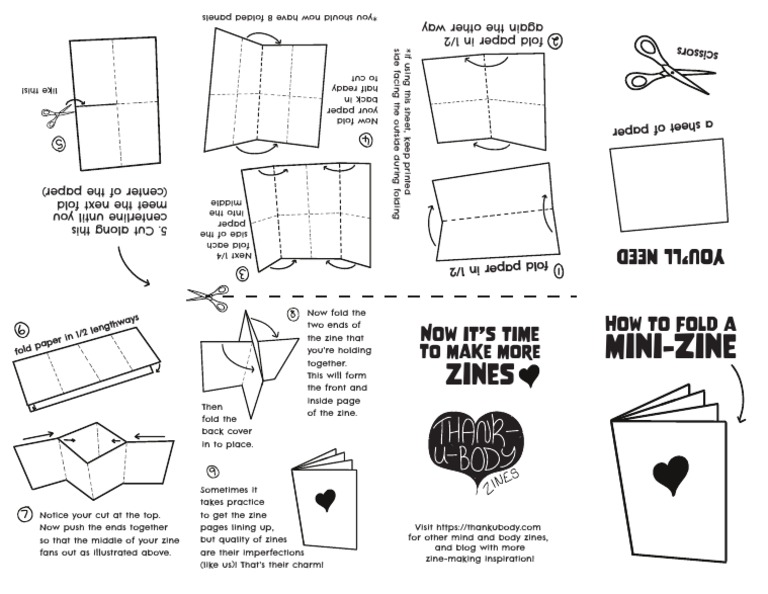 HOW TO FOLD A
MINI-ZINE
YOU'LL NEED
a sheet of paper
scissors
1 fold paper in 1/2
2 fold paper in 1/2
again the other way
*if using this sheet, keep printed
side facing the outside during folding
3
Next 1/4
fold each
side of the
paper
into the
middle
4
Now fold
your paper
back in
half ready
to cut
*you should now have 8 folded panels
5. Cut along this
centerline until you
meet the next fold
(center of the paper)
5
like this!
9
fold paper in 1/2 lengthways
7 Notice your cut at the top.
Now push the ends together
so that the middle of your zine
fans out as illustrated above.
8 Now fold the
two ends of
the zine that
you're holding
together.
This will form
the front and
inside page
of the zine.
Then
fold the
back cover
in to place.
6
Sometimes it
takes practice
to get the zine
pages lining up,
but quality of zines
are their imperfections
(like us)! That's their charm!
NOW IT'S TIME
TO MAKE MORE
ZINES
THANK-
U-BODY
ZINES
Visit https://thankubody.com
for other mind and body zines,
and blog with more
zine-making inspiration!